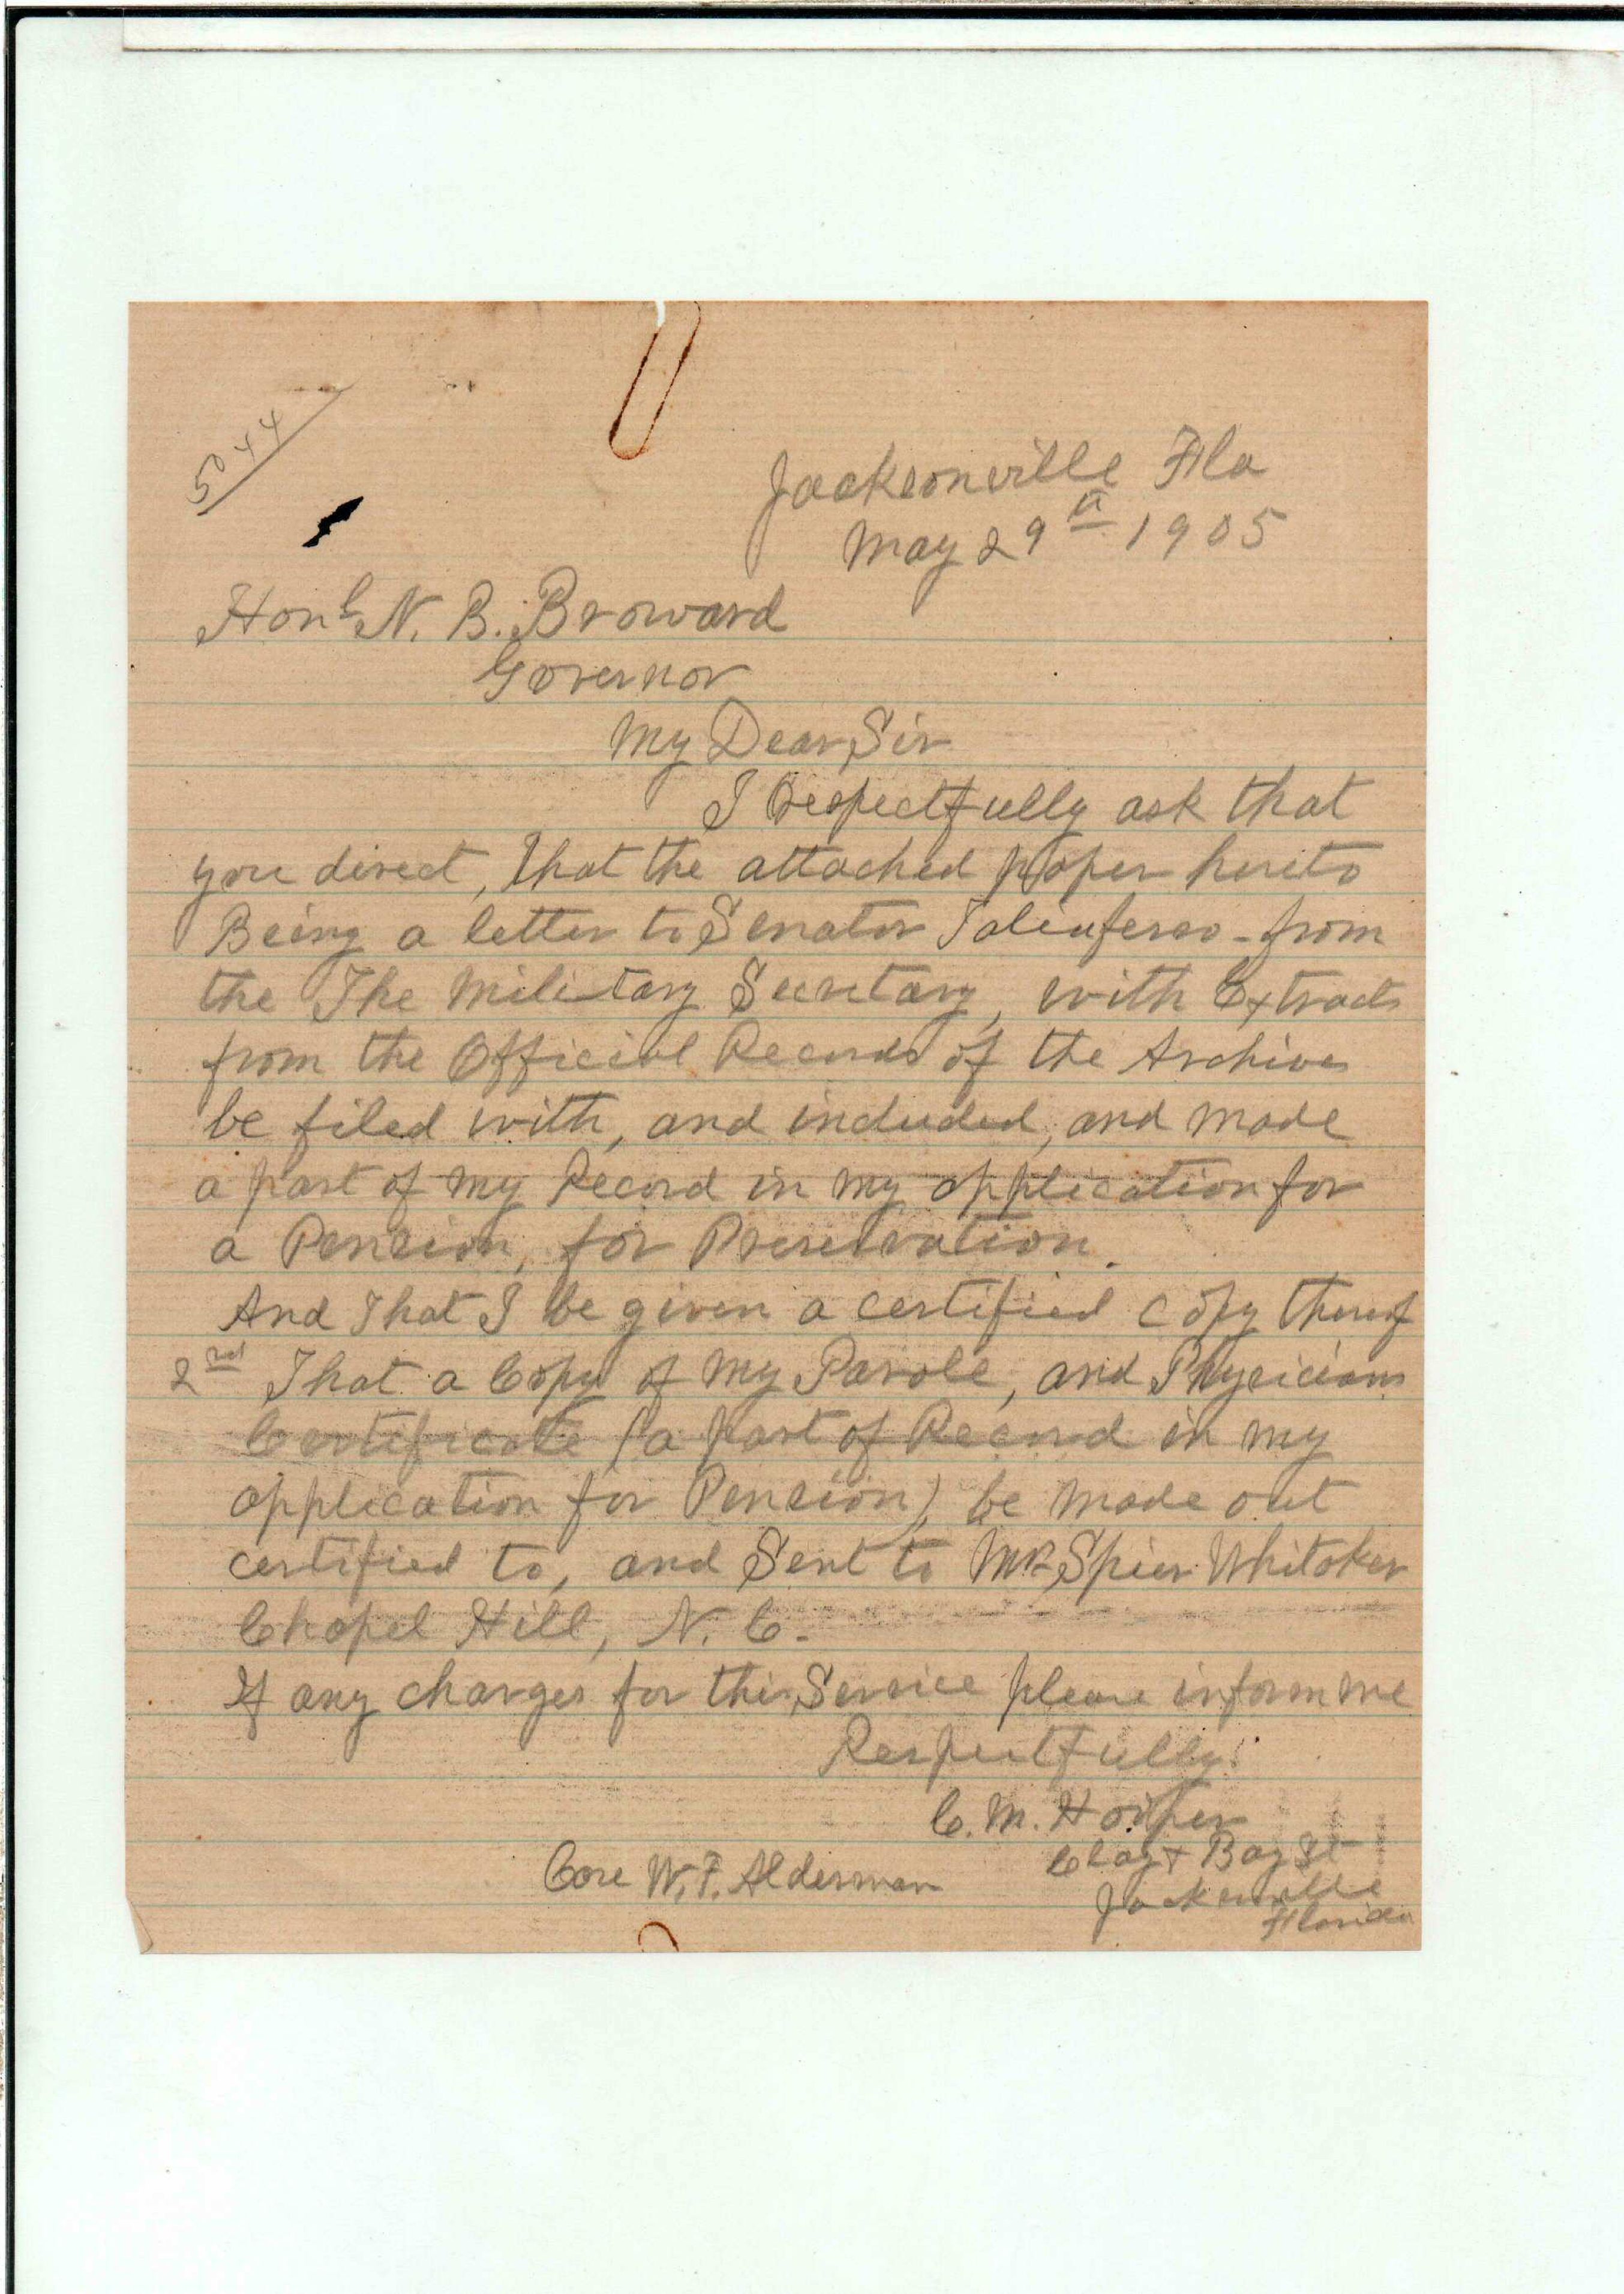 5044
Jacksonville Fla
May 29th 1905
Honl N. B. Broward
Governor
My Dear Sir
I respectfully ask that
you direct, that the attached paper hereto
Being a letter to Senator Taliaferro - from
the The Military Secretary, with Extracts
from the Official Records of the Archives
be filed with, and included, and made
a part of my Record in my application for
a Pension, for Preservation.
And That I be given a certified copy thereof
2nd That a Copy of my Parole, and Physicians
Certificate (a part of Record in my
application for Pension) be made out
certified to, and Sent to Mr Spier Whitaker
Chapel Hill, N. C.
If any charges for this Service please inform me
Respectfully
C. M. Hooper
Clay & Bay St
Care W. F. Alderman
Jacksonville
Florida